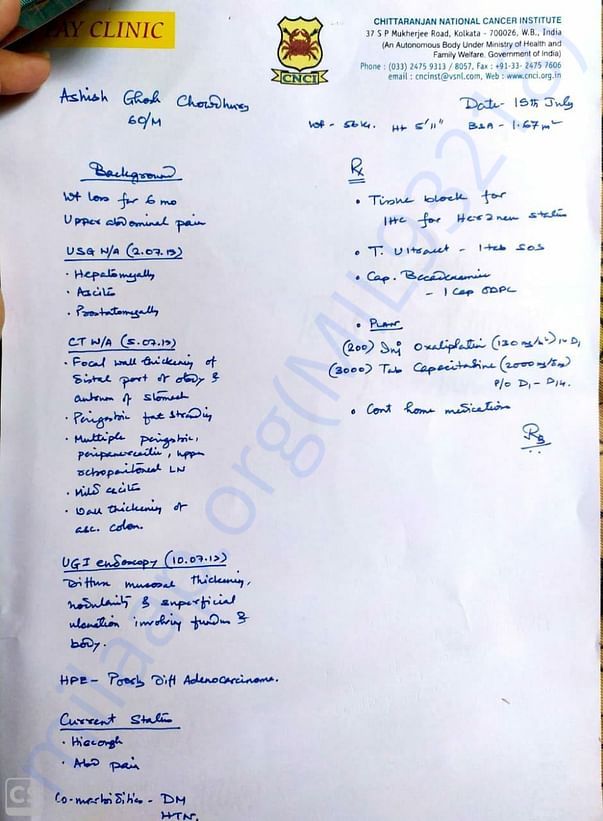 PAY CLINIC
CHITTARANJAN NATIONAL CANCER INSTITUTE
37 S P Mukherjee Road, Kolkata - 700026, W.B., India
(An Autonomous Body Under Ministry of Health and
Family Welfare, Government of India)
Phone : (033) 2475 9313 / 8057, Fax : +91-33- 2475 7606
email : cncinst@vsnl.com, Web : www.cnci.org.in
CNCI
Ashish Ghosh Chowdhury
60/M
Date - 15th July
Wt - 56 Kg. Ht 5'11" BSA - 1.67 m²
Background
Wt loss for 6 mo
Upper abdominal pain
USG W/A (2.07.19)
• Hepatomegally
• Ascites
• Prostatomegally
CT W/A (5.07.19)
• Focal wall thickening of
distal part of body &
antrum of stomach
• Perigastric fat stranding
• Multiple perigastric,
peripancreatic, upper
retroperitoneal LN
• Mild ascites
• Wall thickening of
asc. colon.
UGI endoscopy (10.07.19)
Diffuse mucosal thickening,
nodularity & superficial
ulceration involving fundus &
body.
HPE - Poorly Diff Adenocarcinoma.
Current Status
• Hiccough
• Abd pain
Co-morbidities - DM
HTN.
Rx
• Tissue block for
IHC for Her2neu status
• T. Ultracet - 1 tab SOS
• Cap.
- 1 Cap ODPC
• PLAN
(200) Inj Oxaliplatin (130 mg/m²) iv D1
(3000) Tab Capecitabine (2000 mg/
P/O D1 - D14.
• Cont home medications
milaap.org(MIL93210)
CS